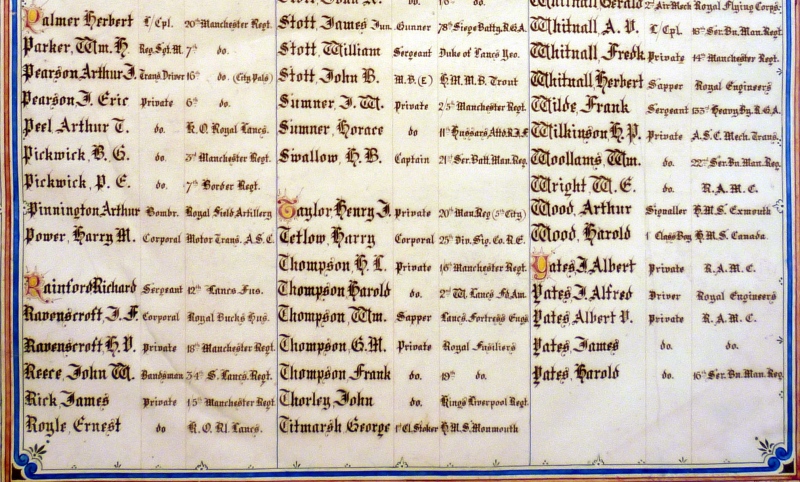 Palmer Herbert L/Cpl. 20th Manchester Regt.
Parker, Wm. H. Reg. Sgt. M. 7th do.
Pearson Arthur J. Trans. Driver 16th do. (City Pals)
Pearson J. Eric Private 6th do.
Peel Arthur T. do. K.O. Royal Lancs.
Pickwick, B. G. do. 3rd Manchester Regt.
Pickwick, P. E. do. 7th Border Regt.
Pinnington Arthur Bombr. Royal Field Artillery
Power, Harry M. Corporal Motor Trans. A.S.C.
Rainford Richard Sergeant 12th Lancs. Fus.
Ravenscroft, J. F. Corporal Royal Bucks Hus.
Ravenscroft, H. V. Private 18th Manchester Regt.
Reece, John W. Bandsman 3/4th S. Lancs. Regt.
Rick, James Private 15th Manchester Regt.
Royle, Ernest do K.O. Rl. Lancs.
Stott, James Jun. Gunner 78th Siege Batty. R.G.A.
Stott, William Sergeant Duke of Lancs Yeo.
Stott, John B. M.B. (E) H.M.M.B. Trout
Sumner, J. W. Private 2/5th Manchester Regt.
Sumner, Horace do 11th Hussars Attd R.A.F.
Swallow, H. B. Captain 21st Ser. Batt. Man. Reg.
Taylor, Henry J. Private 20th Man. Reg (5th City)
Tetlow, Harry Corporal 25th Div. Sig. Co. R.E.
Thompson, H. L. Private 16th Manchester Regt.
Thompson Harold do. 2nd W. Lancs Fd. Am.
Thompson, Wm. Sapper Lancs. Fortress Engs
Thompson, G. M. Private Royal Fusiliers
Thompson Frank do. 19th do.
Thorley, John do. Kings Liverpool Regt.
Titmarsh George 1st Cl. Stoker H.M.S. Monmouth
Whitnall Gerald 2nd Air Mech Royal Flying Corps.
Whitnall, A. V. L/Cpl. 18th Ser. Bn. Man. Regt.
Whitnall, Fredk Private 14th Manchester Regt.
Whitnall Herbert Sapper Royal Engineers
Wilde, Frank Sergeant 133rd Heavy By. R.G.A.
Wilkinson H. P. Private A.S.C. Mech. Trans.
Woollams, Wm. do. 22nd Ser. Bn. Man. Reg.
Wright, W. E. do. R.A.M.C.
Wood, Arthur Signaller H.M.S. Exmouth
Wood, Harold 1st Class Boy H.M.S. Canada
Yates J. Albert Private R.A.M.C.
Yates, J. Alfred Driver Royal Engineers
Yates, Albert V. Private R.A.M.C.
Yates, James do. do.
Yates, Harold do. 16th Ser. Bn. Man. Reg.